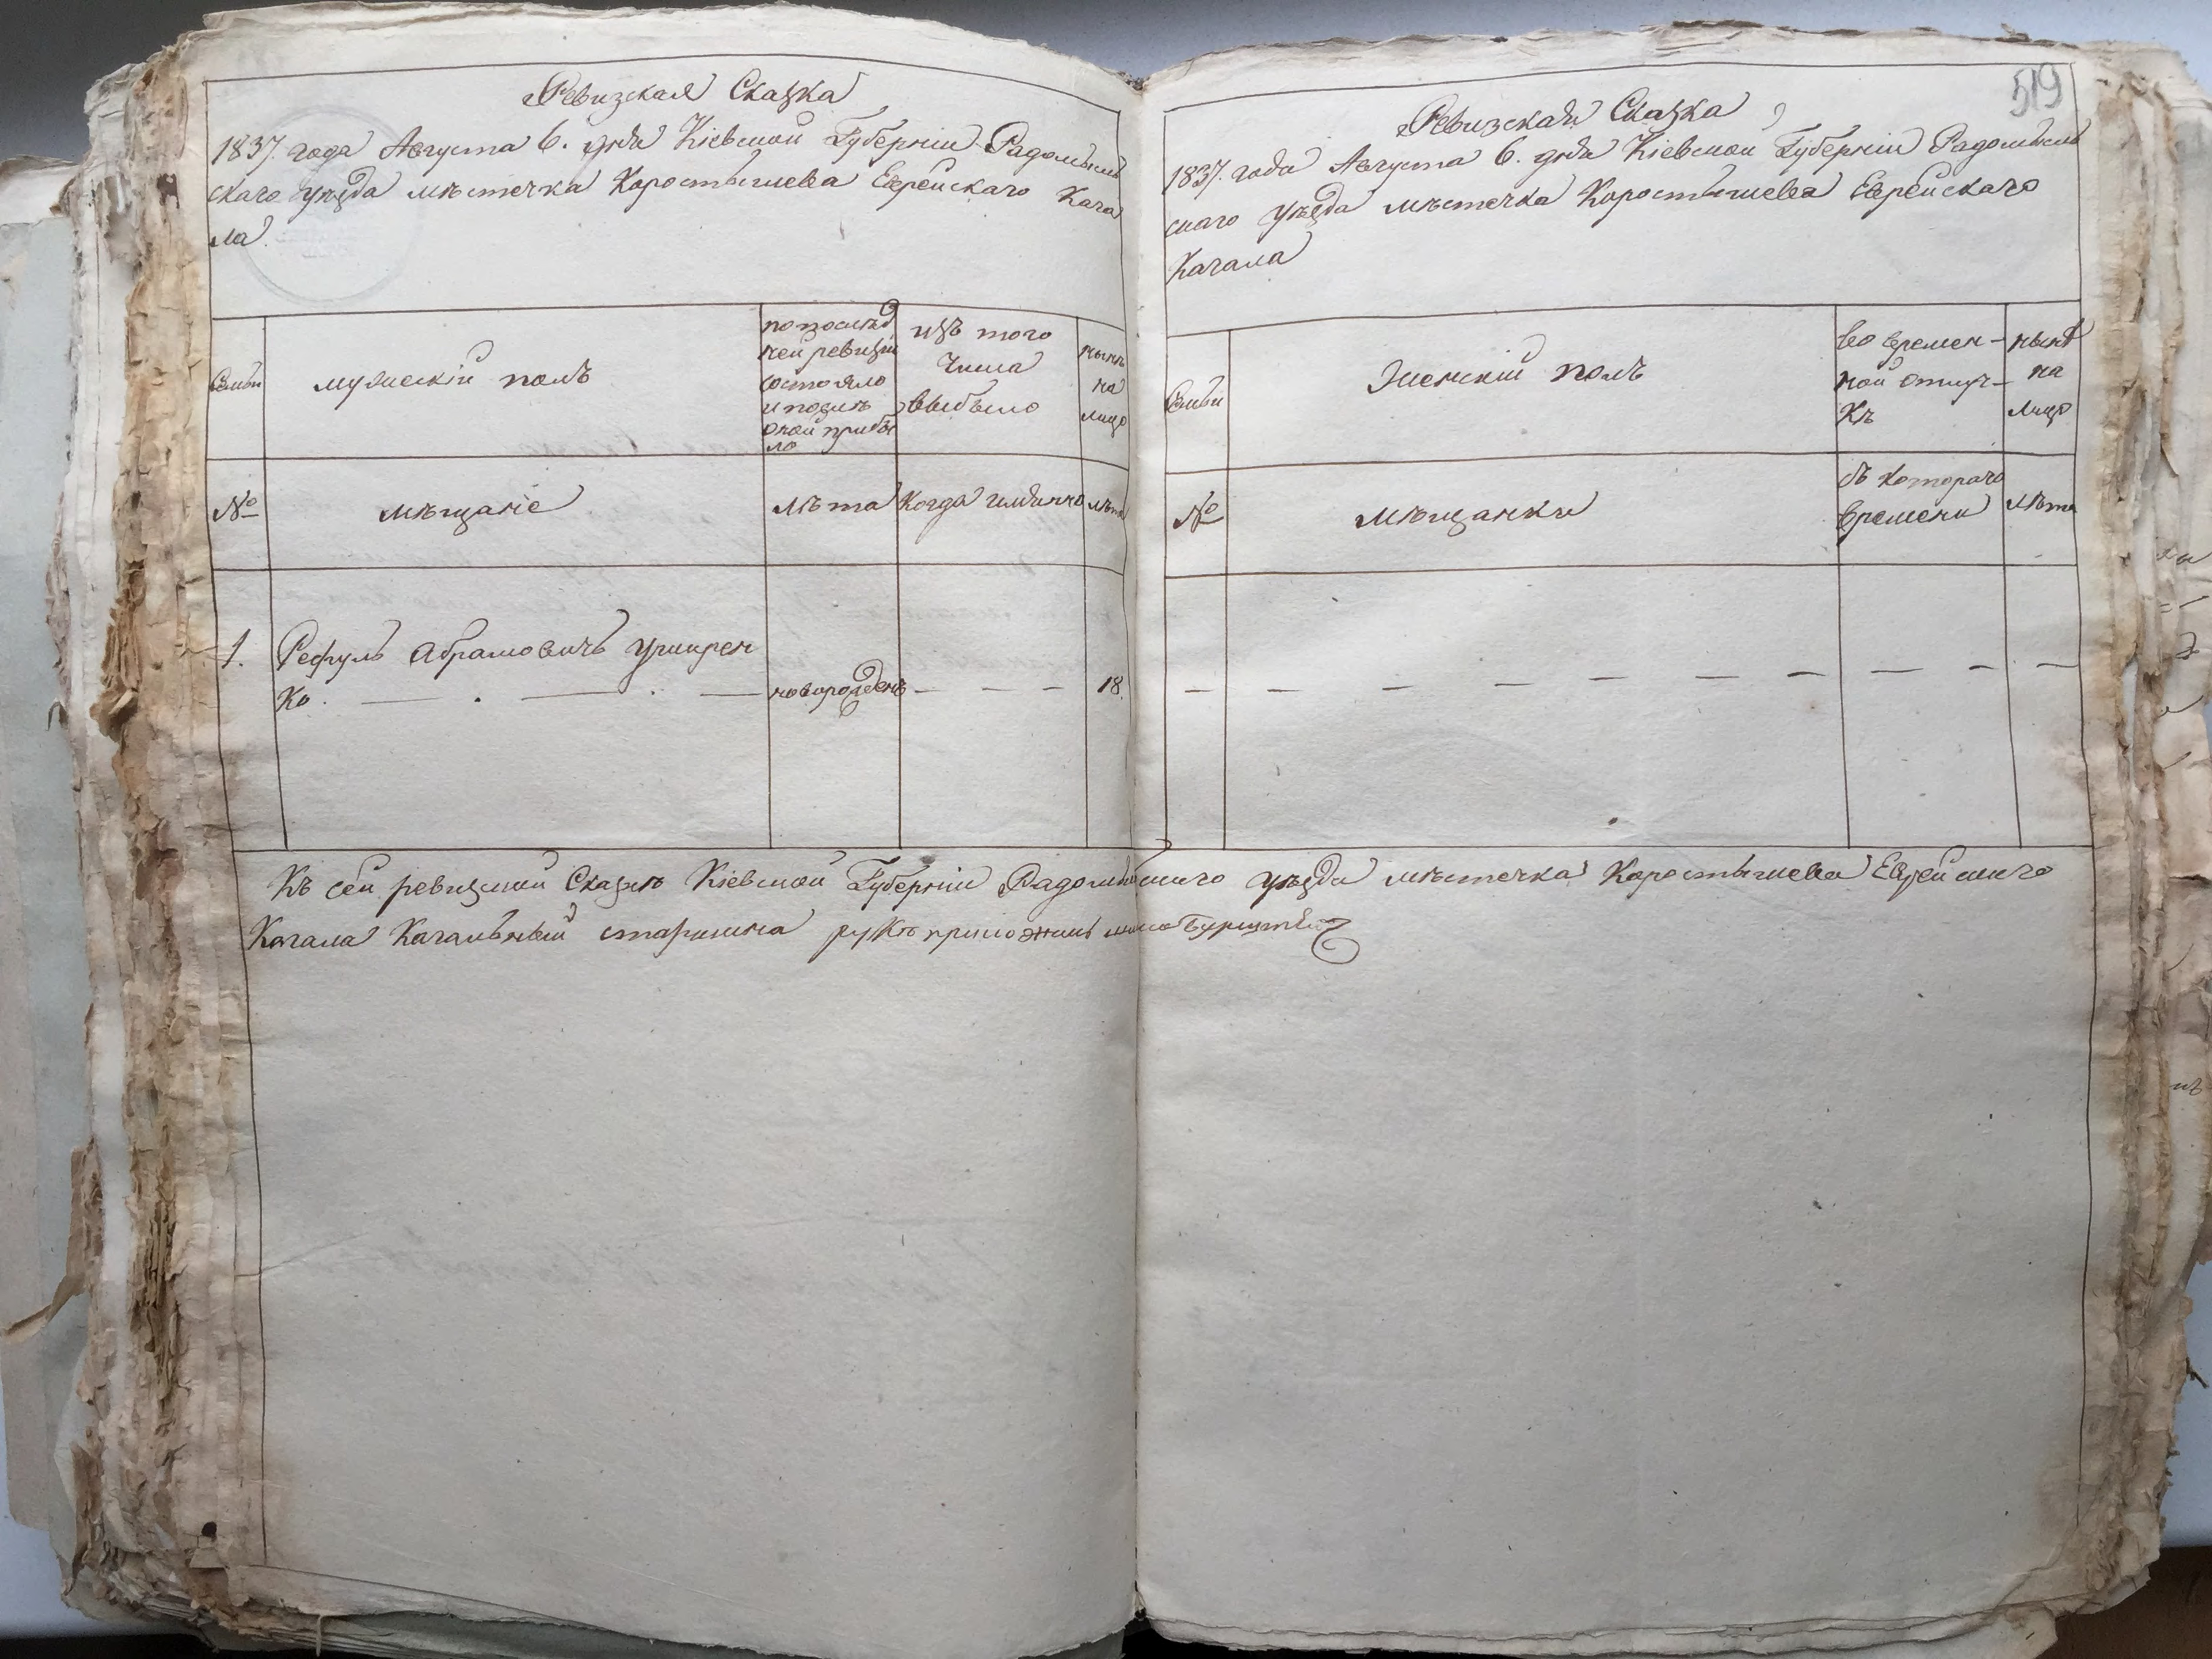 Ревизская Сказка
1837. года Августа 6. дня Кіевской Губерніи Радомысль
скаго уезда мѣстечка Коростышева Еврейскаго Кага
ла
Семьи
мужескій полъ
по послѣд
ней ревизіи
состояло
и послѣ
оной прибы
ло
изъ того
числа
выбыло
нынѣ
на
лицо
№
мѣщаніе
лѣта
когда имянно
лѣта
1.
Абрамовичъ
ко.
новорожденъ
18.
519
Ревизская Сказка
1837. года Августа 6. дня Кіевской Губерніи Радомысль
скаго уѣзда мѣстечка Коростышева Еврейскаго
Кагала
Семьи
Женскій полъ
во времен-
ной отлуч-
кѣ
нынѣ
на
лицо
№
мѣщанки
съ котораго
времени
лѣта
Къ сей ревизской Сказкѣ Кіевской Губерніи Радомысльскаго уѣзда мѣстечка Коростышева Еврейскаго
Кагала Кагальный старшина руку приложилъ